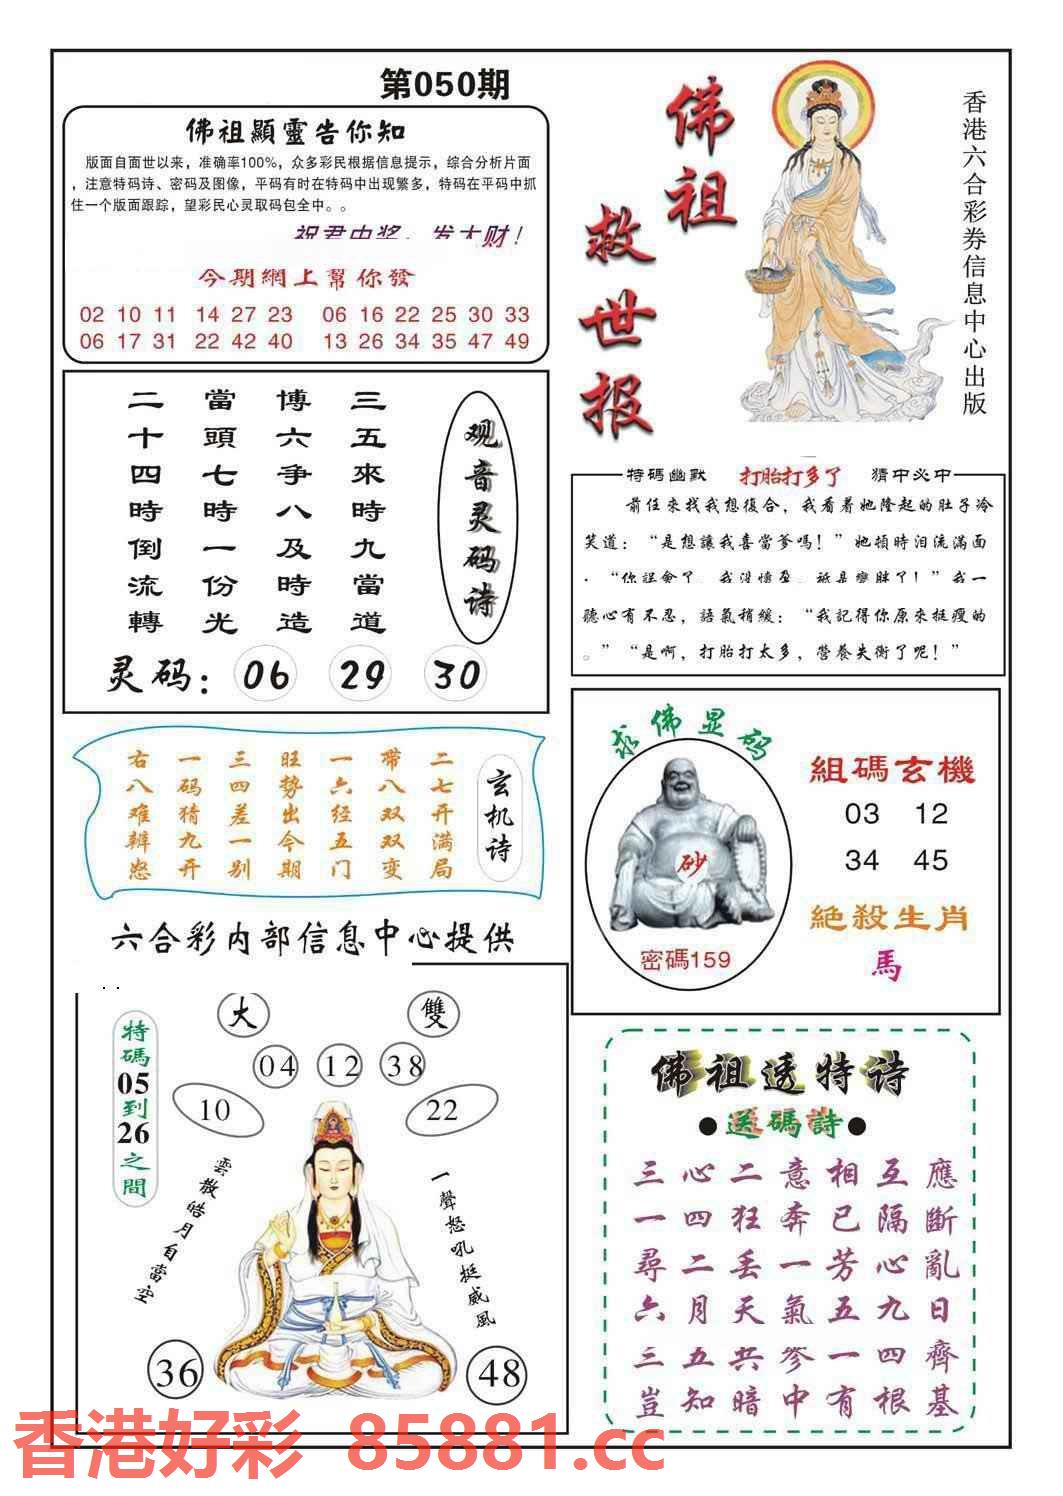 第050期
佛祖顯靈告你知
版面自面世以来，准确率100%，众多彩民根据信息提示，综合分析片面
，注意特码诗、密码及图像，平码有时在特码中出现繁多，特码在平码中抓
住一个版面跟踪，望彩民心灵取码包全中。。
祝君中奖，发大财！
今期網上幫你發
02 10 11 14 27 23 06 16 22 25 30 33
06 17 31 22 42 40 13 26 34 35 47 49
佛祖
救世报
香港六合彩券信息中心出版
观音灵码诗
三五來時九當道
博六爭八及時造
當頭七時一份光
二十四時倒流轉
灵码：06 29 30
特碼幽默 打胎打多了 猜中必中
前任來找我想復合，我看着她隆起的肚子冷
笑道：“是想讓我喜當爹嗎！”她頓時泪流滿面
聽心有不忍，語氣稍緩：“我記得你原來挺瘦的
。”“是啊，打胎打太多，營養失衡了呢！”
玄机诗
二七开满局
带八双双变
一六经五门
旺势出今期
三四差一别
一码猜九开
右八难辨怒
求佛显码
砂
密碼159
組碼玄機
03 12
34 45
絕殺生肖
馬
六合彩内部信息中心提供
大 雙
04 12 38
10 22
特碼05到26之間
雲散皓月自當空
一聲怒吼挺威風
36 48
佛祖透特诗
●送碼詩●
三心二意相互應
一四狂奔已隔斷
尋二丢一芳心亂
六月天氣五九日
三五共参一四齊
豈知暗中有根基
香港好彩 85881.cc